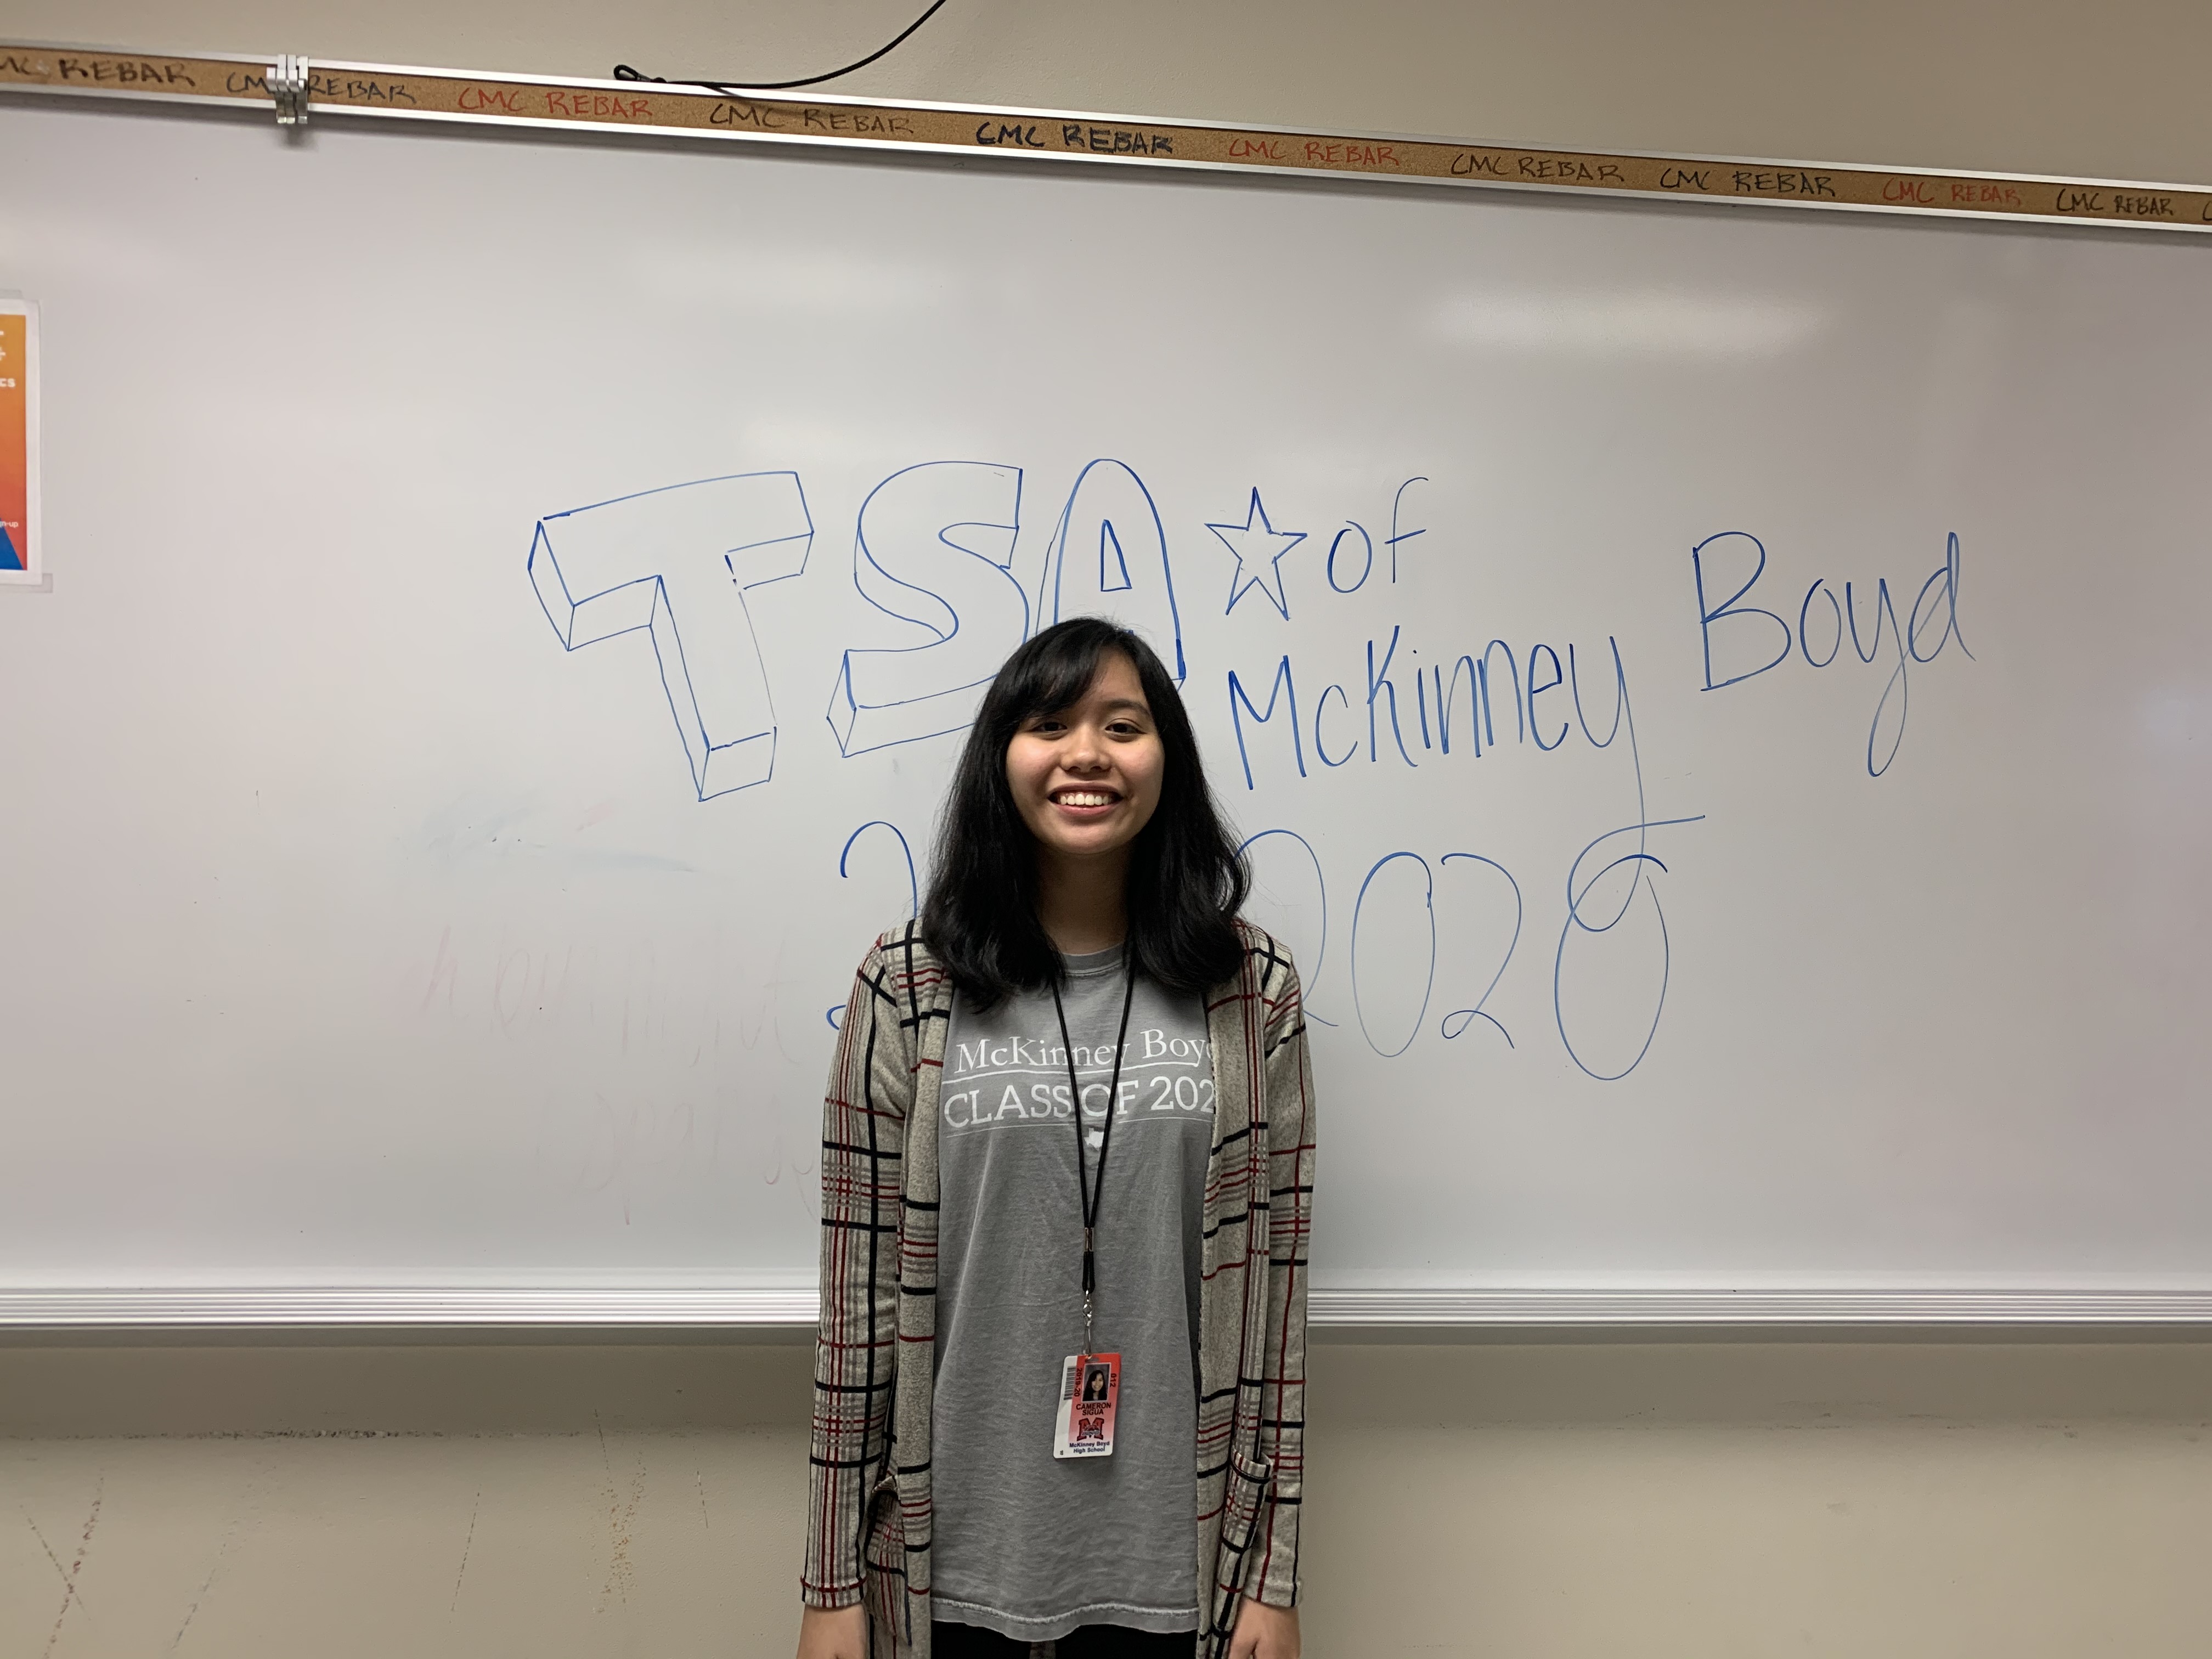 CMC REBAR CMC REBAR CMC REBAR CMC REBAR CMC REBAR CMC REBAR CMC REBAR CMC REBAR CMC REBAR CMC REBAR
TSA of
McKinney Boyd
2020
McKinney Boy
CLASS OF 202
2019-20
012
CAMERON
SIGUA
McKinney Boyd
High School